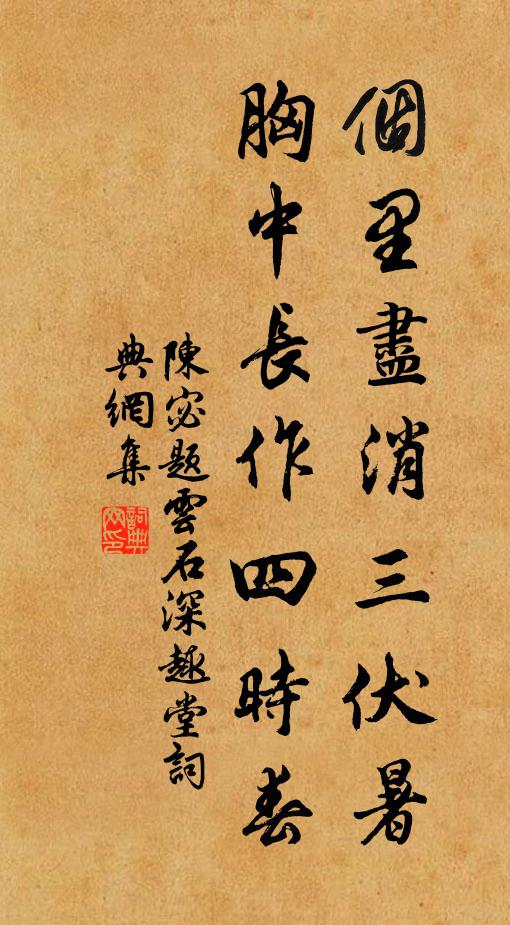 個里盡消三伏暑
胸中長作四時春
陳宓題雲石深趣堂詞
典網集
詞典网